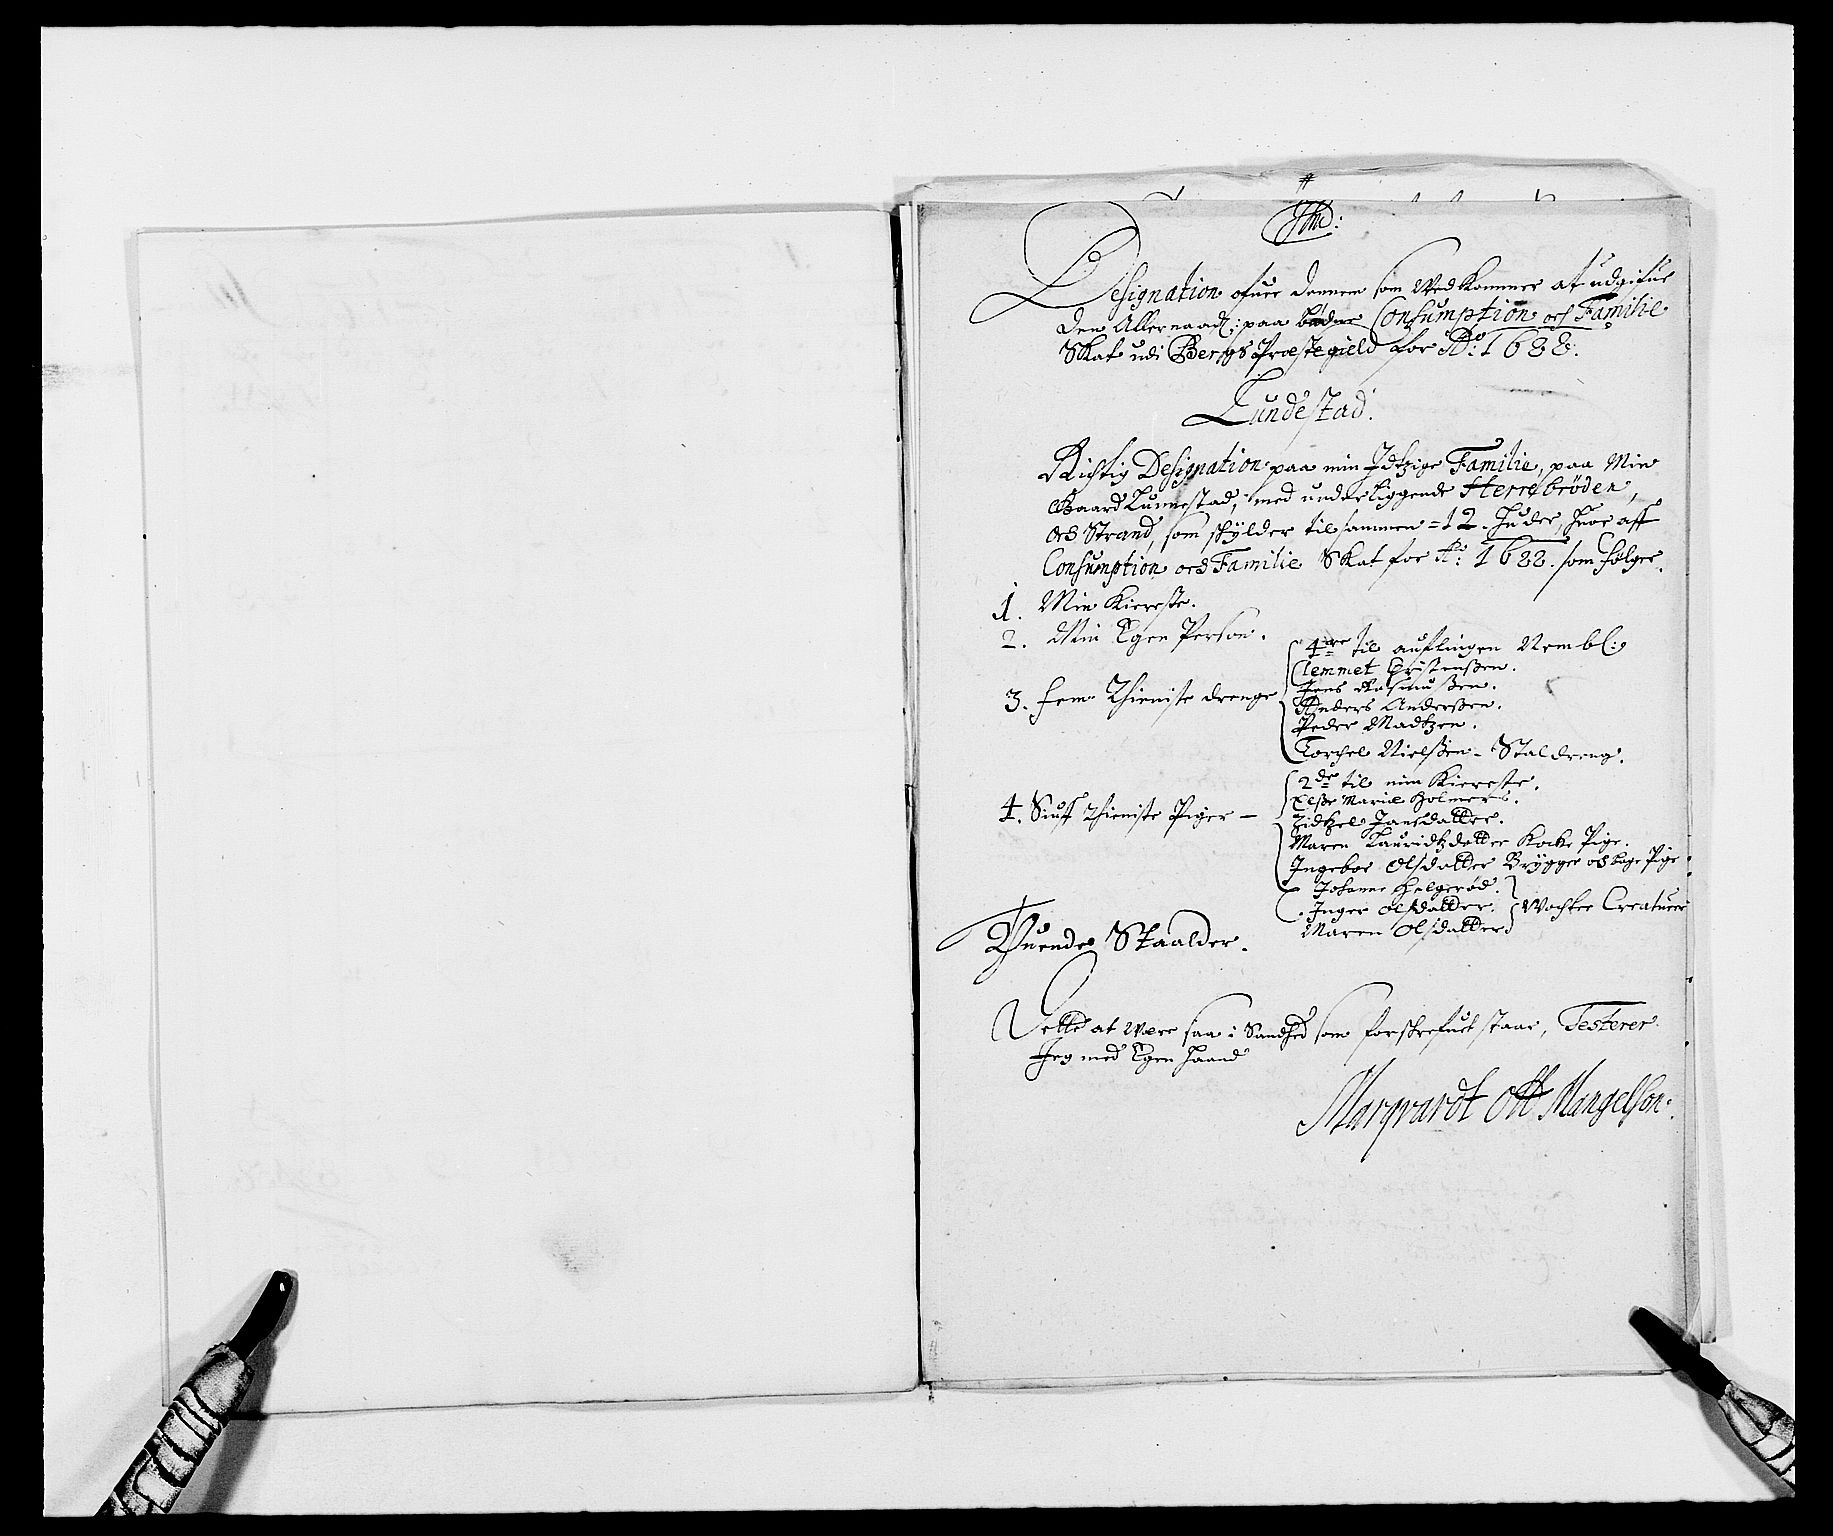 Designation ofuer dennem som Wed Kommer at udgifue
den Allernaad: paa budne Consumption och Familie
Skat udi Bergs Præstegield for Ao: 1688.
Lundestad.
Richtig Designation paa min Jdtzige Familie, paa Min
Gaard Lunnestad, med underliggende Herrebrøden,
och Strand, som skÿlder tilsammen = 12. Huder, huor aff
Consumption och Familie Skat for Ao: 1688. som følger.
1. Min Kiereste.
2. Min Egen Person.
3. fem Thieniste drenge
4re til auflingen Nembl:
Clemmet Christenßen.
Jens Rasmußen.
Anders Anderßen.
Peder Madtzen.
Torchel Nielßen - Staldreng.
4. Siuf Thieniste Piger -
2de til min Kiereste.
Elße Marie Holmers.
Zidtzel Jansdatter.
Maren Lauridtzdatter Kocke Pige.
Ingebor Olsdatter Brÿgger och bage Pige
Johanne Helgerød.
Inger Olsdatter. Wochter Creatuer
Maren Olsdatter
Tuende Staalder.
Dette at Were saa i Sandhed som forskrefuet staar, Testerer
Jeg med Egen Haand
Marqvardt Ott Mangelson.